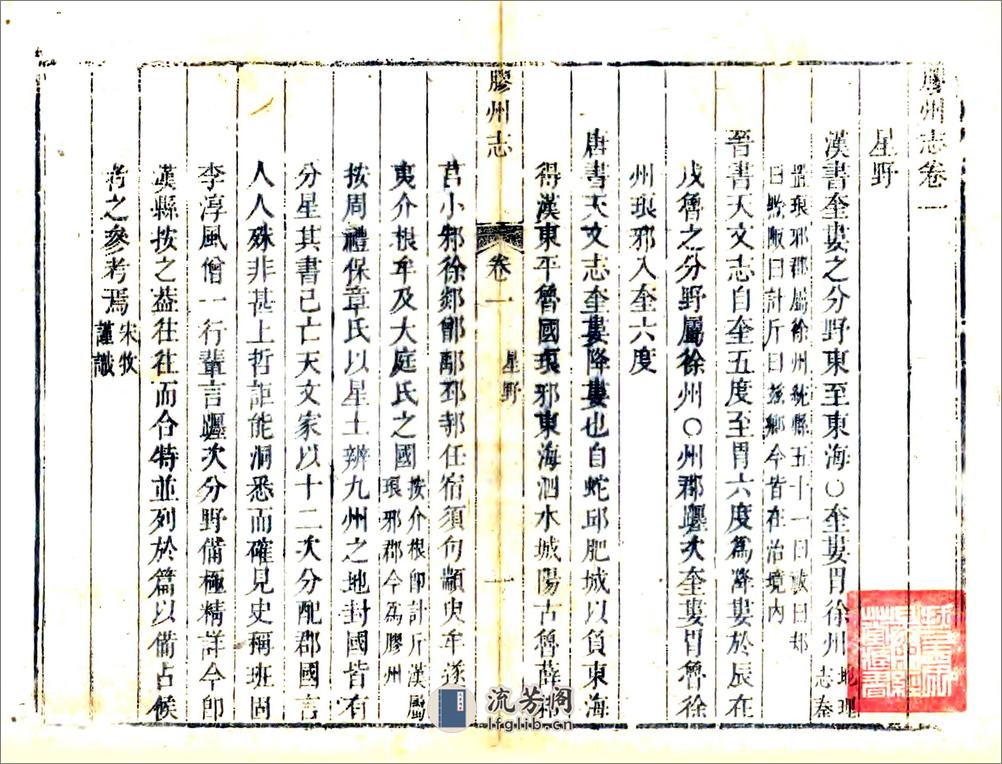 膠州志卷一
星野
漢書奎婁之分野東至東海○奎婁胃徐州地理志秦
置琅邪郡屬徐州統縣五十一曰祓曰邞
曰黔陬曰計斤曰茲鄉今皆在治境内
晉書天文志自奎五度至胃六度為降婁於辰在
戌魯之分野屬徐州○州郡躔次奎婁胃魯徐
州琅邪入奎六度
唐書天文志奎婁降婁也自蛇邱肥城以負東海
得漢東平魯國琅邪東海泗水城陽古魯薛
膠州志
卷一
星野
一
莒小邾徐郯鄫鄅邳邿任宿須句顓臾牟遂
夷介根牟及大庭氏之國按介根即計斤漢屬
琅邪郡今為膠州
按周禮保章氏以星土辨九州之地封國皆有
分星其書已亡天文家以十二次分配郡國言
人人殊非甚上哲詎能洞悉而確見史稱班固
李淳風僧一行輩言躔次分野備極精詳今即
漢縣按之葢往往而合特並列於篇以備占候
考之參考焉宋牧
謹識
流芳阁
lfglib.cn